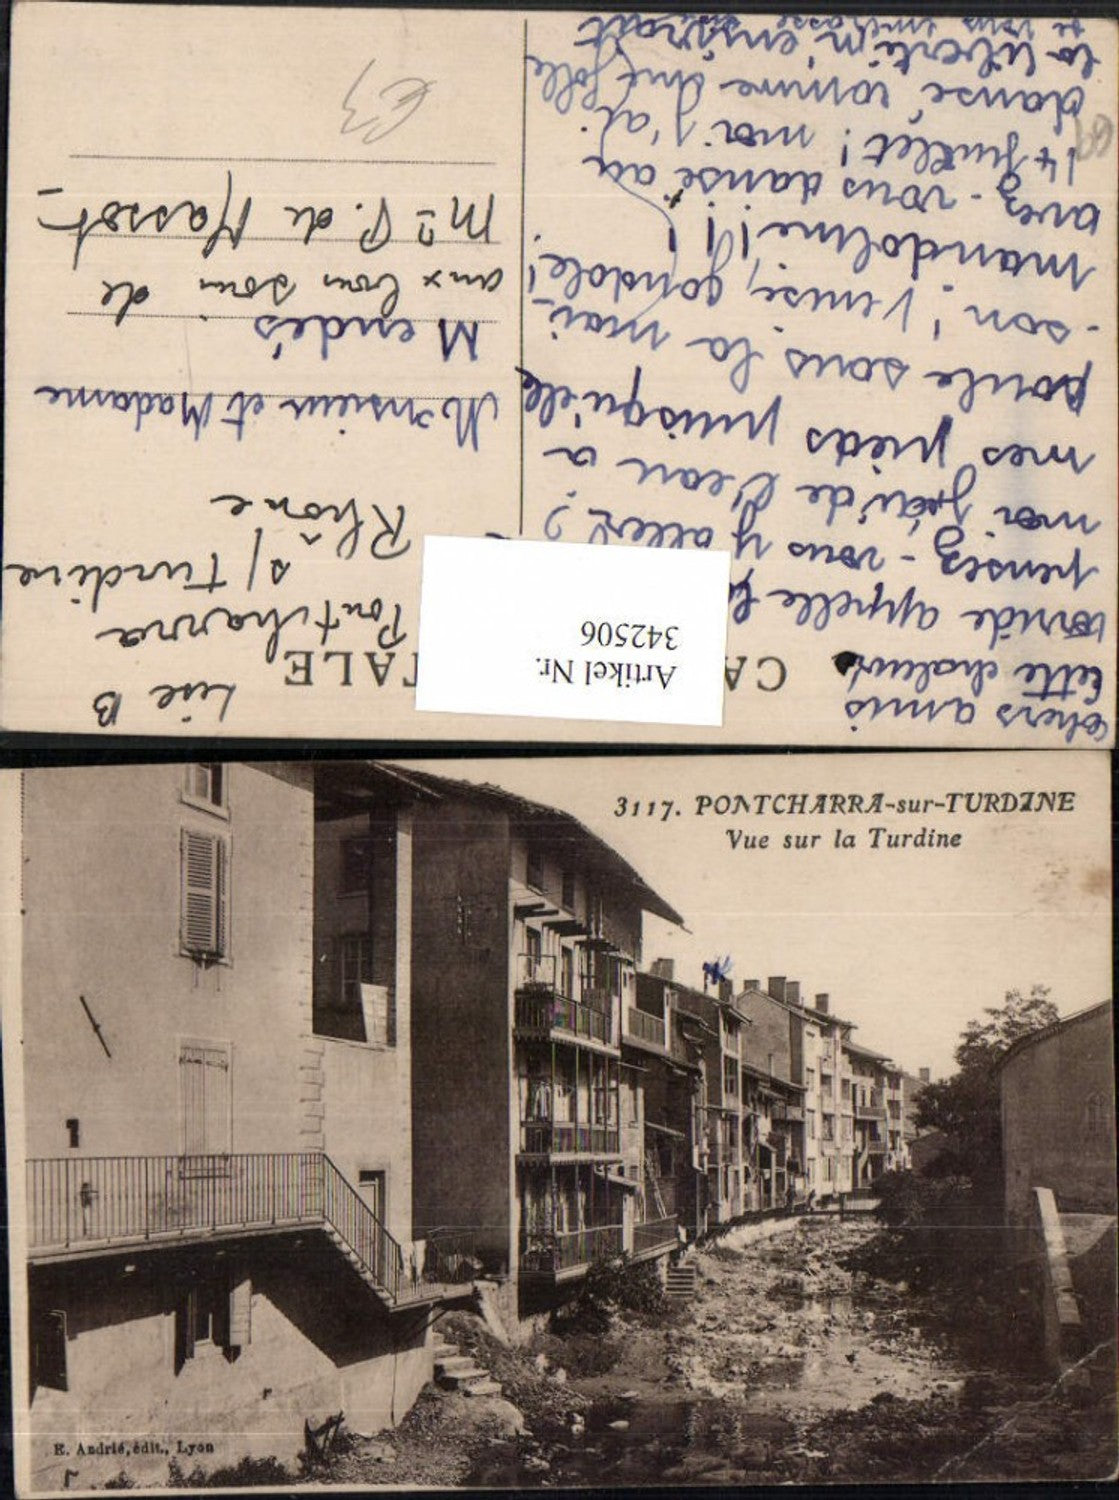 chers amis
Cette chaleur
torride appelle
pensez-vous y aller?
moi j'ai de l'eau a
mes pieds puisqu'elle
coule sous la mai-
-son! Venise, gondole!
mandoline!!!
avez-vous dansé au
14 Juillet! moi j'ai
dansé comme une folle
la liberté m'enivrait
je vous embrasse
CA
TALE
Artikel Nr.
342506
Lise B
Pontcharra
s/ turdine
Rhône
Monsieur et Madame
Mendès
aux bon soin de
Mme P. de Massot
3117. PONTCHARRA-sur-TURDINE
Vue sur la Turdine
E. Andrié, édit., Lyon